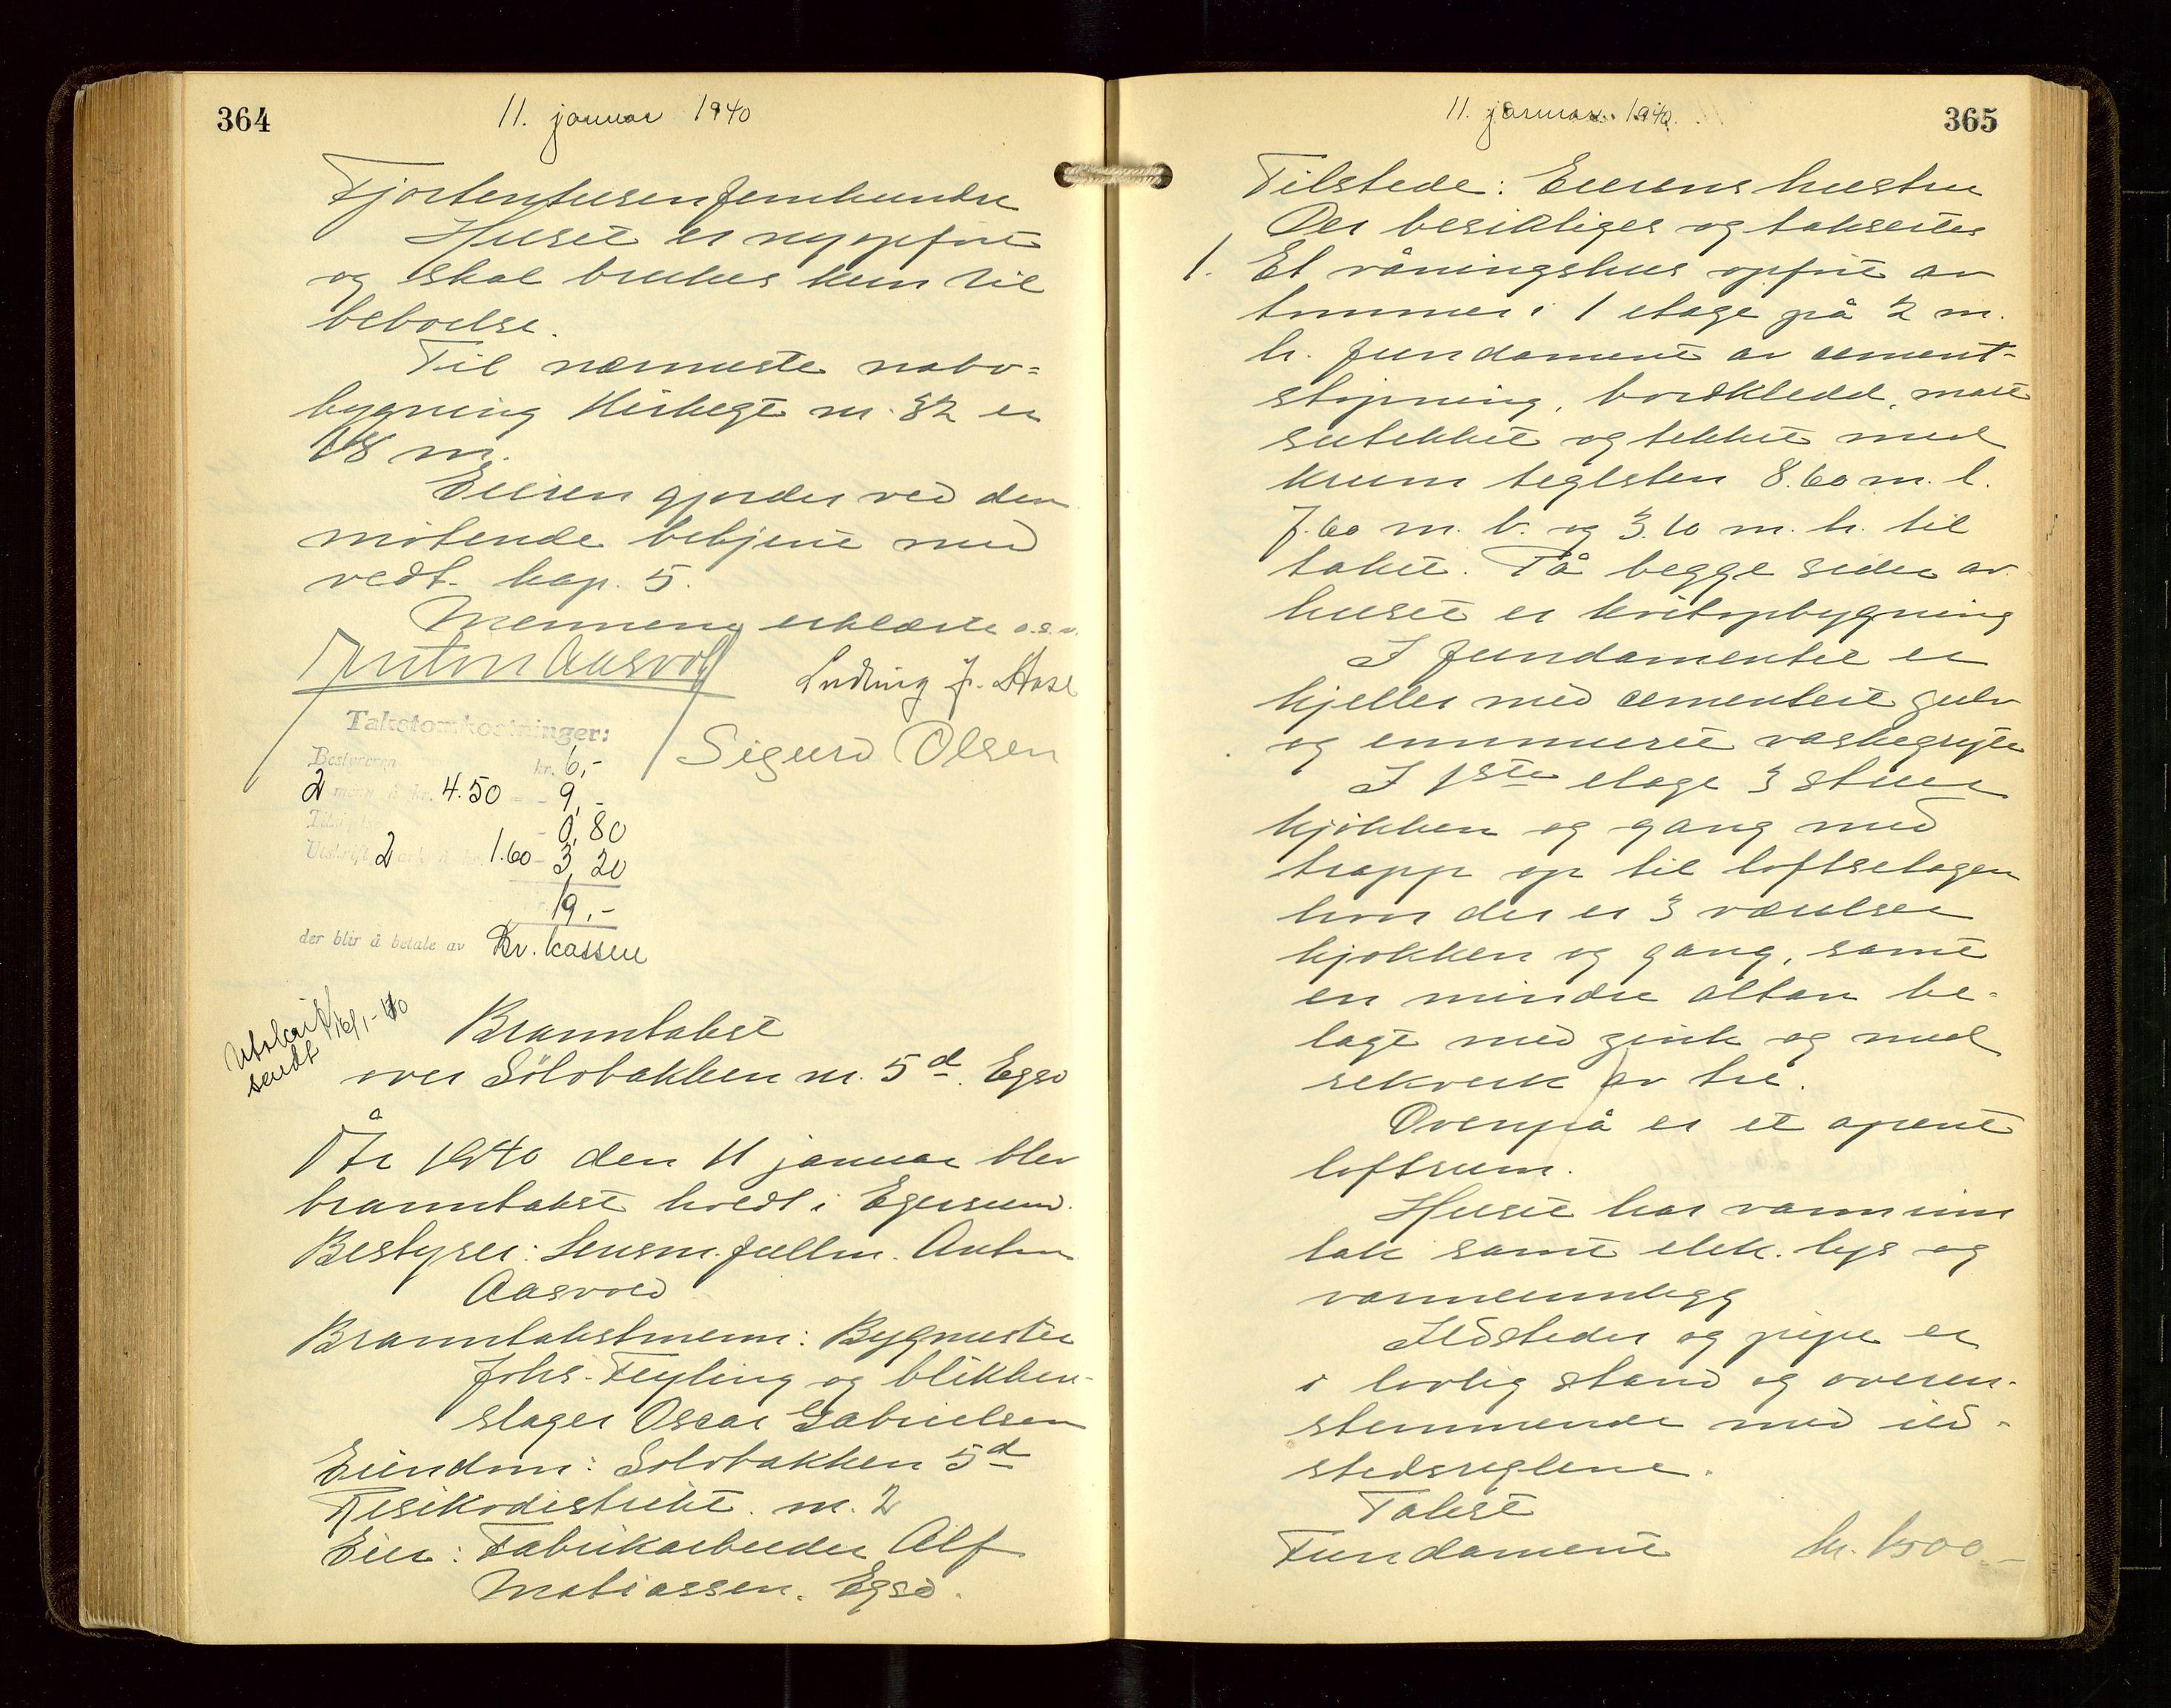 364
11. januar 1940
Fjortentusenfemhundre
Huset er nyopført
og skal brukes kun til
beboelse.
Til nærmeste nabo=
bygning Kirkegt nr. 32 er
18 m.
Eieren gjordes ved den
møtende bekjent med
vedt. kap. 5.
Mennene erklærte o.s.v.
Anton Aasvold
Ludvig J. Hase
Sigurd Olsen
Takstomkostninger:
Bestyreren kr. 6,-
2 menn à kr. 4.50 = - 9,-
- 0,80
Utskrift 2 ark à kr. 1.60 - 3,20
19,-
der blir å betale av Br. kassen
Utskrift sendt 16/1-40
Branntakst
over Sölvbakken nr. 5d. Egsd
År 1940 den 11 januar blev
branntakst holdt i Egersund.
Bestyrer: lensm. fullm. Anton
Aasvold
Branntakstmenn: Bygmester
Johs. Feyling og blikken-
slager Oscar Gabrielsen
Eiendom: Solvbakken 5d
Risikodistrikt nr. 2
Eier: Fabrikarbeider Alf
Matiassen. Egsd.
365
11. januar 1940.
Tilstede: Eierens hustru
Der besiktiges og takseres
1. Et våningshus opført av
tømmer i 1 etage på 2 m.
h. fundament av cement-
støpning, bordkledd, matt
sutekket og tekket med
krum teglsten 8.60 m. l.
7.60 m. b. og 3.10 m. h. til
taket. På begge sider av
huset er kvistopbygning
I fundamentet er
kjeller med cementert gulv
og innmuret vaskegryte
I 1ste etage 3 stuer
kjøkken og gang med
trapp op til loftsetagen
hvor der er 3 værelser
kjøkken og gang, samt
en mindre altan be-
lagt med zink og med
rekverk av tre.
Ovenpå er et åpent
loftsrum.
Huset har vanninn
tak samt elek. lys og
varmeinnlegg
Ildsteder og pipe er
i lovlig stand og overen-
stemmende med ild-
stedsreglene.
Takst
Fundament kr. 1500.-